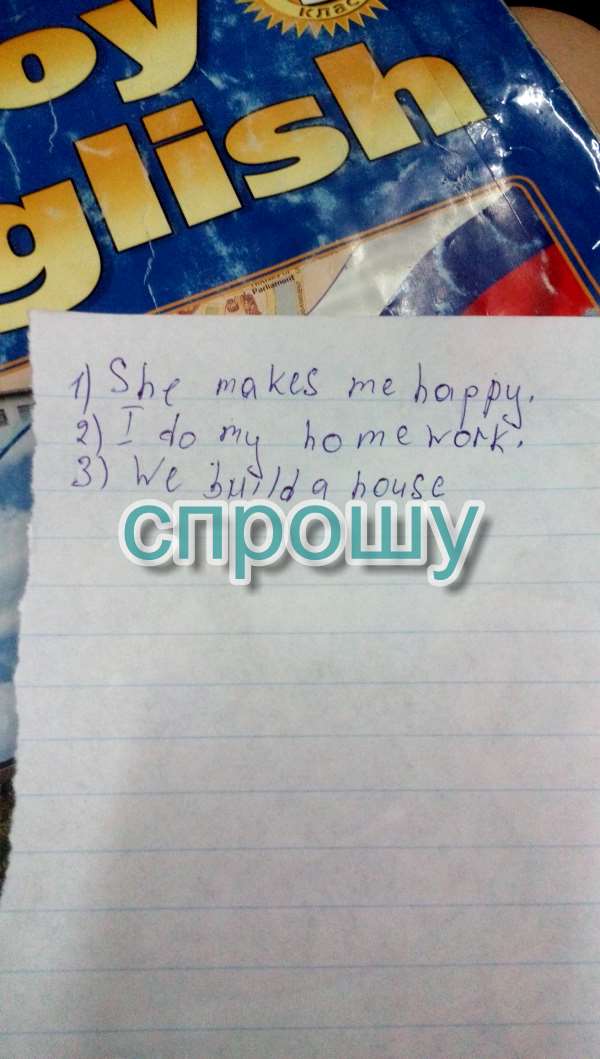 oy
glish
клас
Parliament
1) She makes me happy.
2) I do my homework.
3) We build a house
спрошу